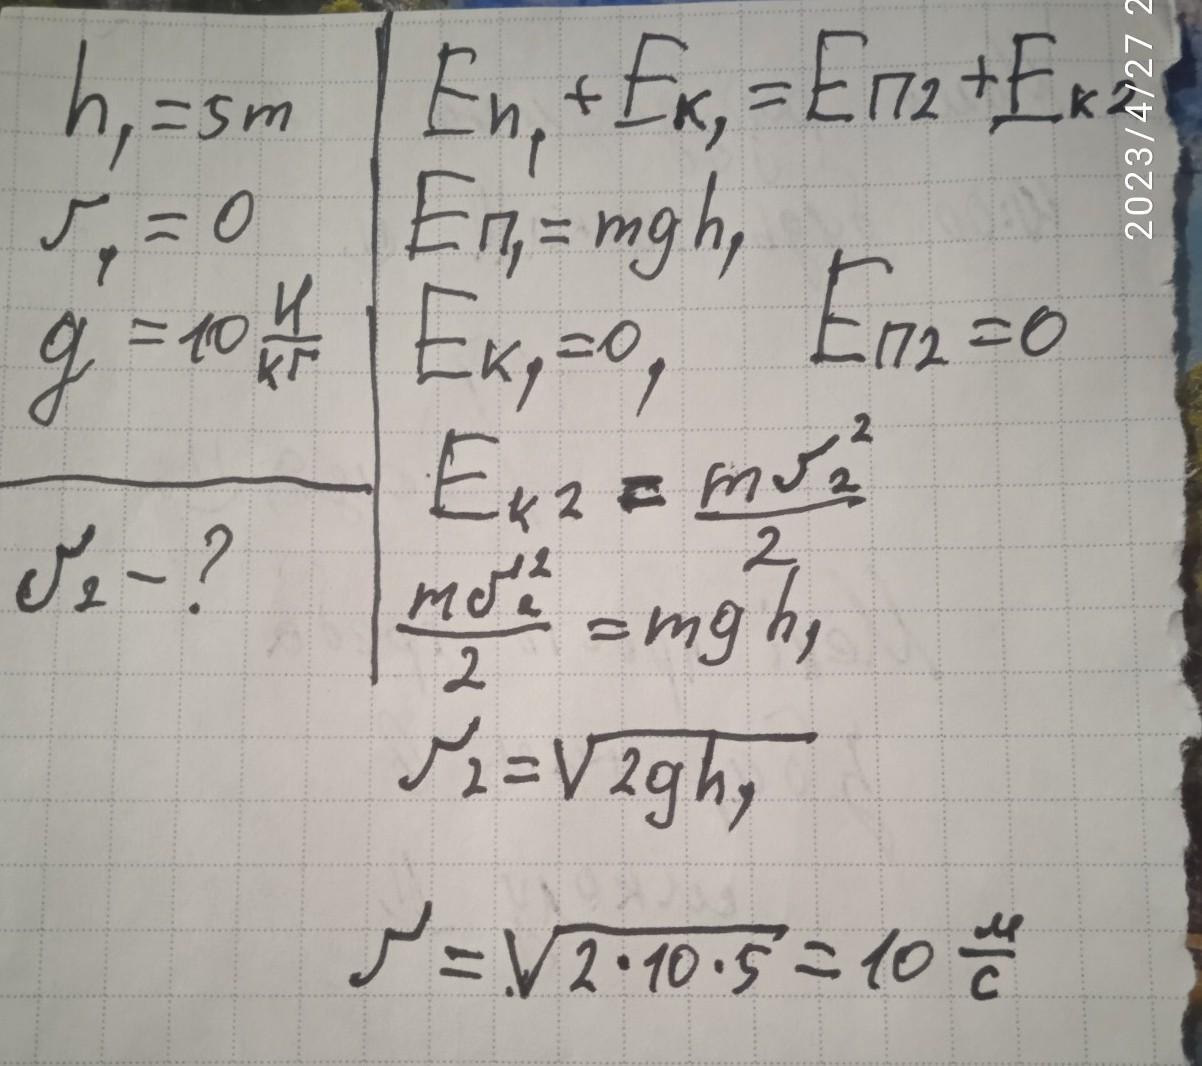 h₁ = 5m
v₁ = 0
g = 10 Н/кг
v₂ - ?
Eп₁ + Eк₁ = Eп2 + Eк2
Eп₁ = mgh₁
Eк₁ = 0, Eп2 = 0
Eк2 = mv₂²/2
mv₂²/2 = mgh₁
v₂ = √2gh₁
v = √2·10·5 = 10 м/с
2023/4/27 2